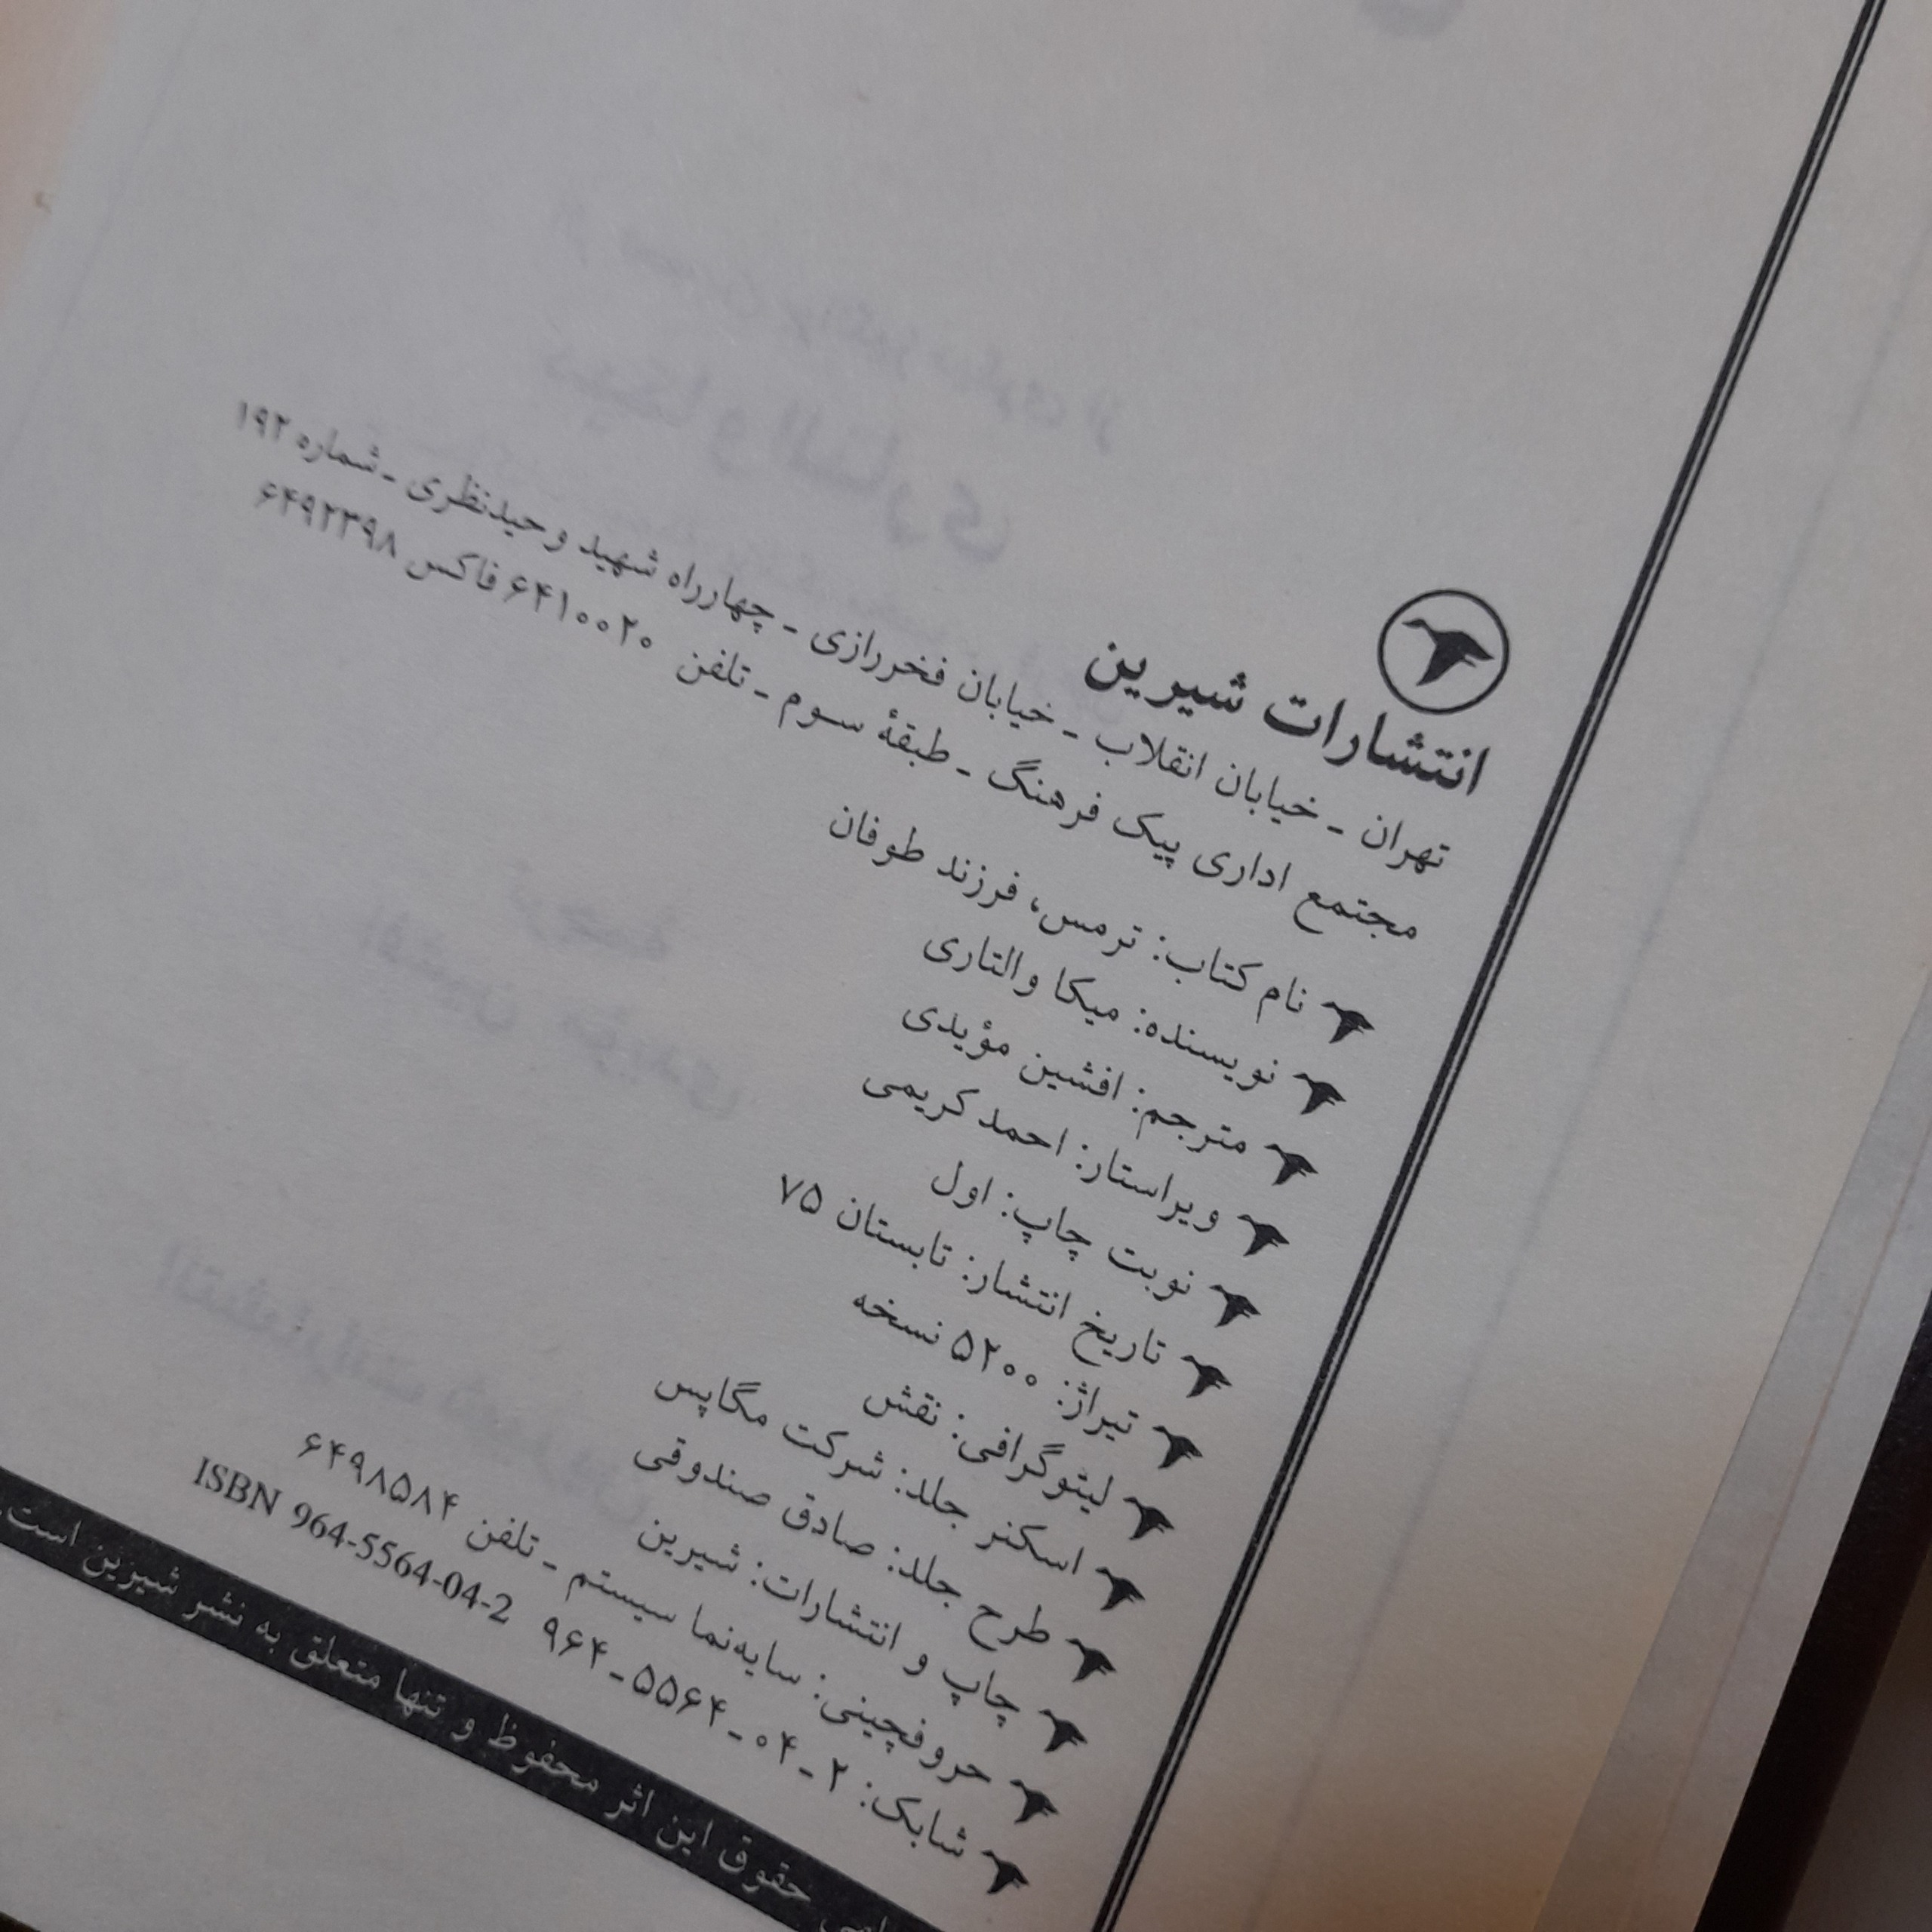 انتشارات شیرین
تهران ـ خیابان انقلاب ـ خیابان فخررازی ـ چهارراه شهید وحیدنظری ـ شماره ۱۹۲
مجتمع اداری پیک فرهنگ ـ طبقهٔ سوم ـ تلفن ۶۴۱۰۰۲۰ فاکس ۶۴۹۲۳۹۸
نام کتاب: ترمس، فرزند طوفان
نویسنده: میکا والتاری
مترجم: افشین مؤیدی
ویراستار: احمد کریمی
نوبت چاپ: اول
تاریخ انتشار: تابستان ۷۵
تیراژ: ۵۲۰۰ نسخه
لیتوگرافی: نقش
اسکنر جلد: شرکت مگاپس
طرح جلد: صادق صندوقی
چاپ و انتشارات: شیرین
حروفچینی: سایه‌نما سیستم ـ تلفن ۶۴۹۸۵۸۴
شابک: ۲ـ۰۴ـ۵۵۶۴ـ۹۶۴ ISBN 964-5564-04-2
حقوق این اثر محفوظ و تنها متعلق به نشر شیرین است.